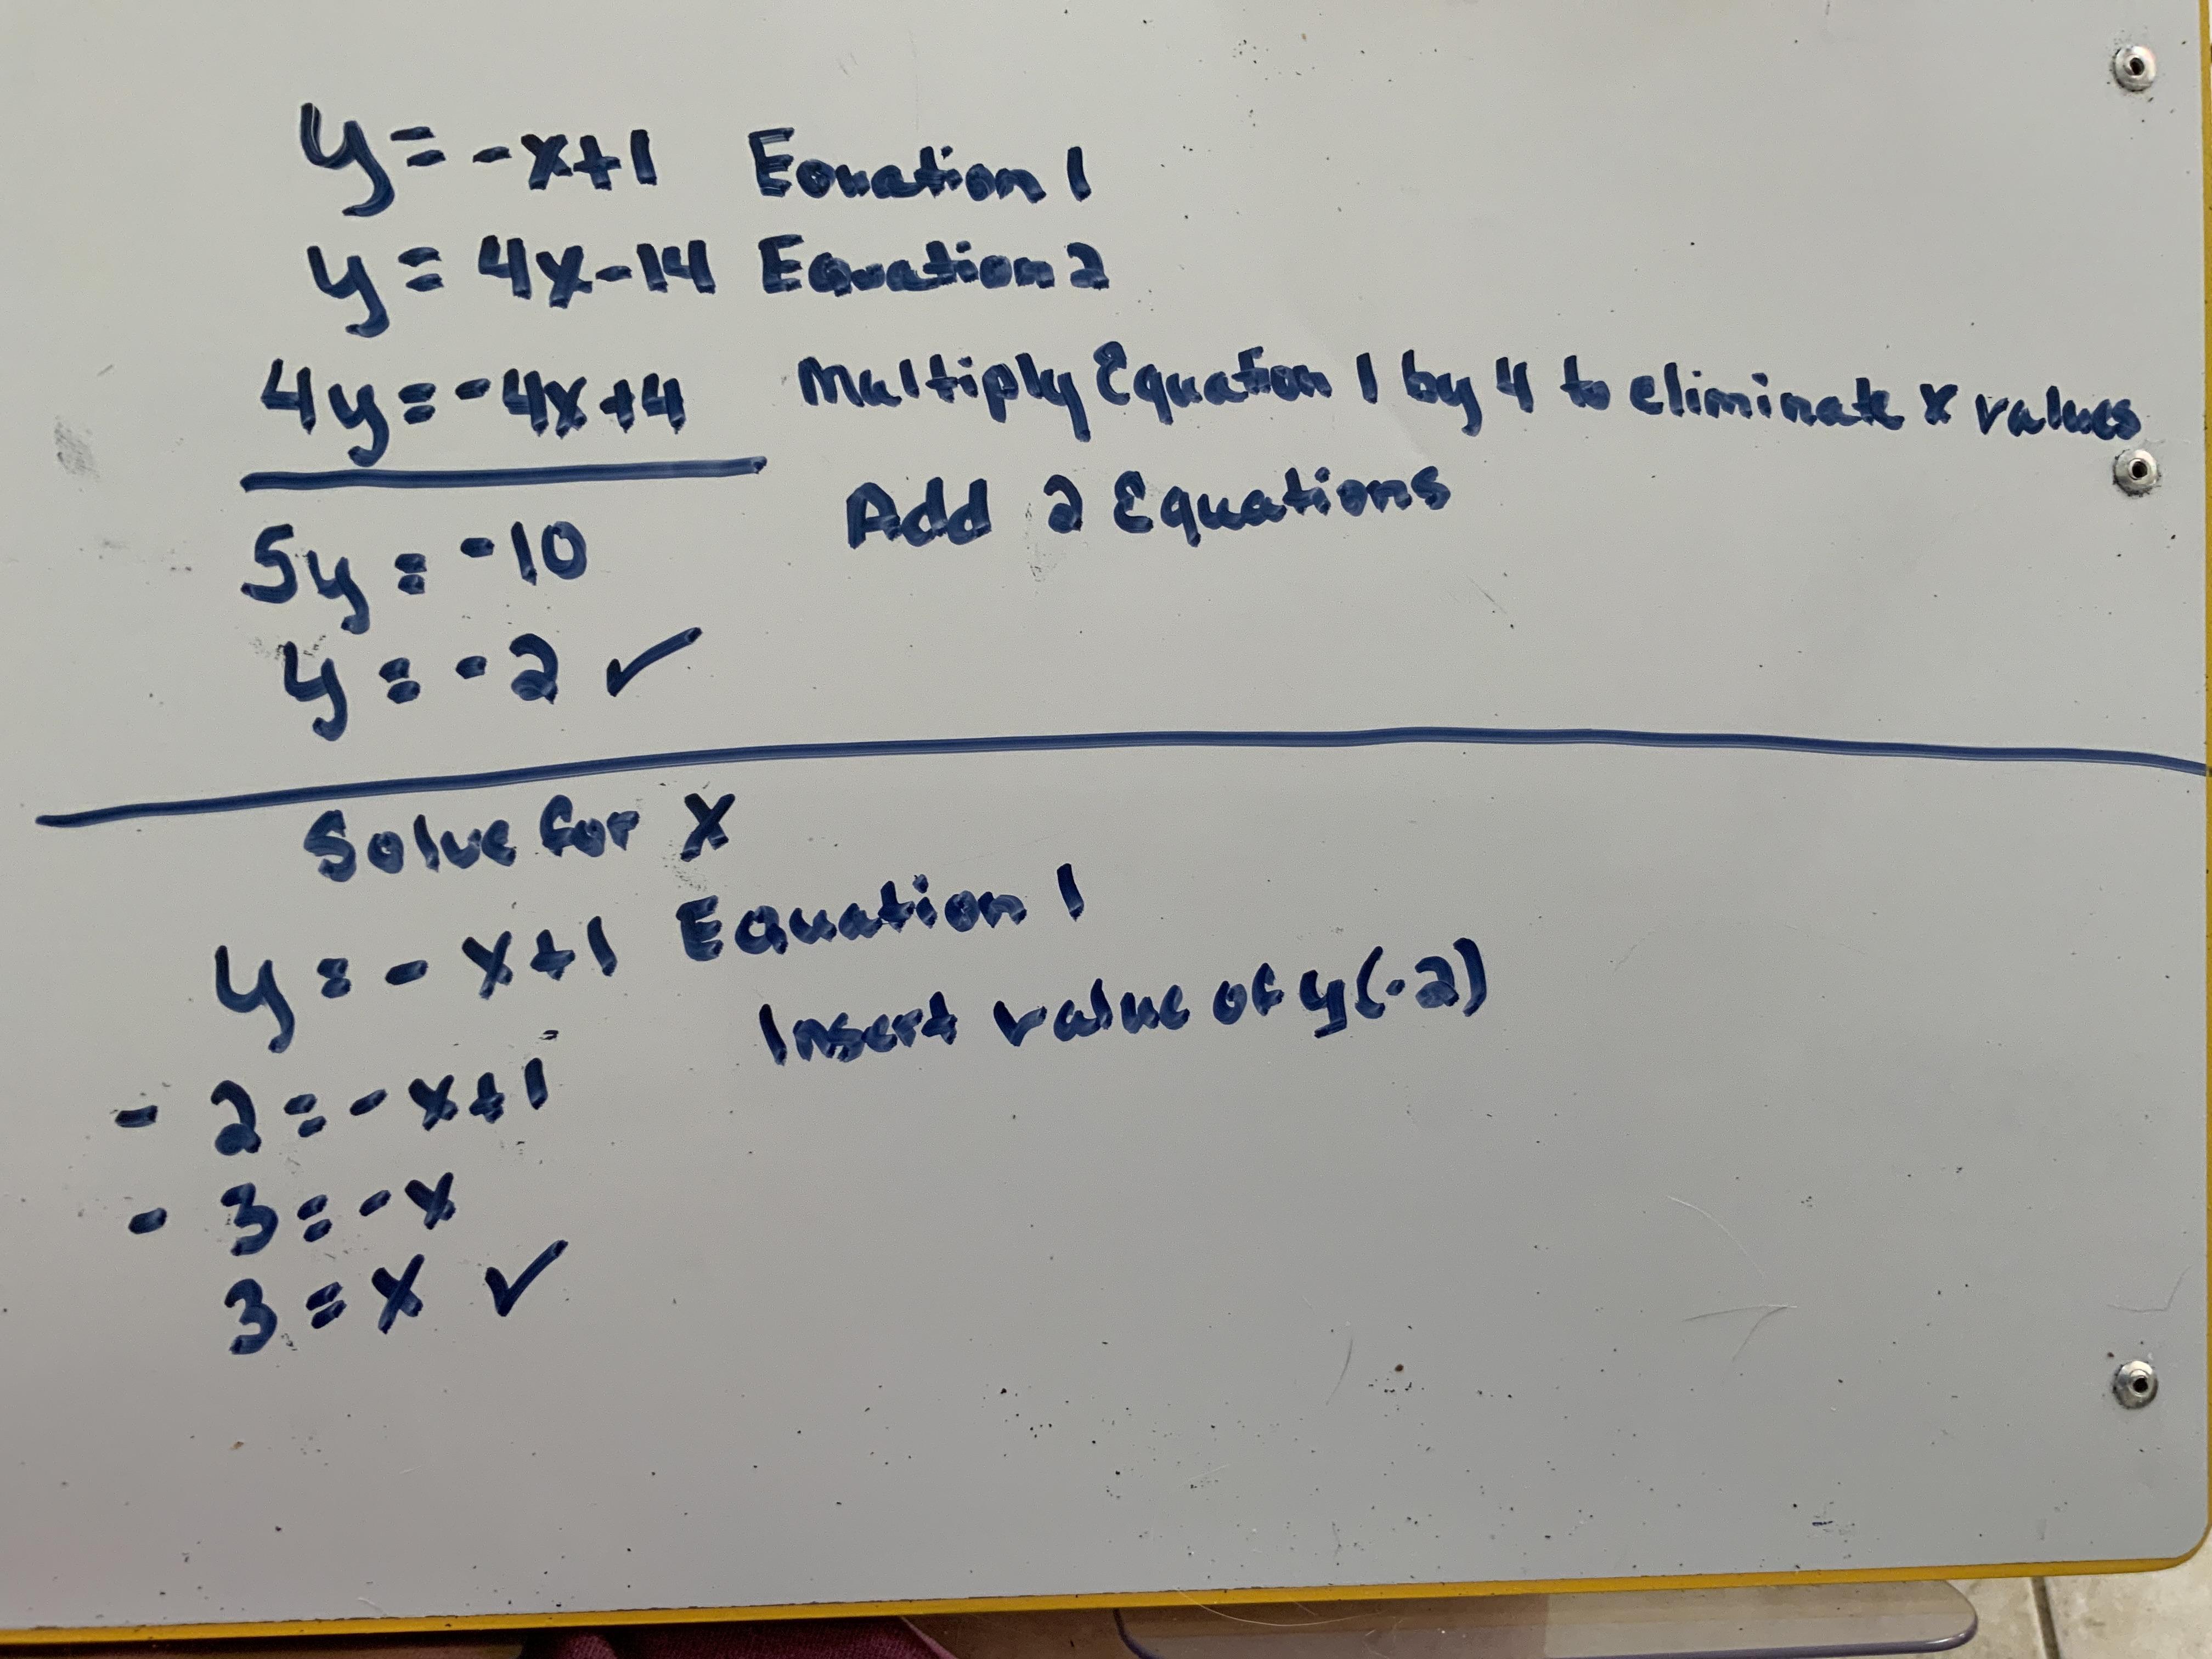 y = -x+1 Eouation 1
y = 4x-14 Equation 2
4y = -4x+4 Multiply Equation 1 by 4 to eliminate x values
Add 2 Equations
5y = -10
y = -2 ✓
Solve for X
y = -x+1 Equation 1
Insert value of y(-2)
- 2 = -x+1
- 3 = -x
3 = x ✓